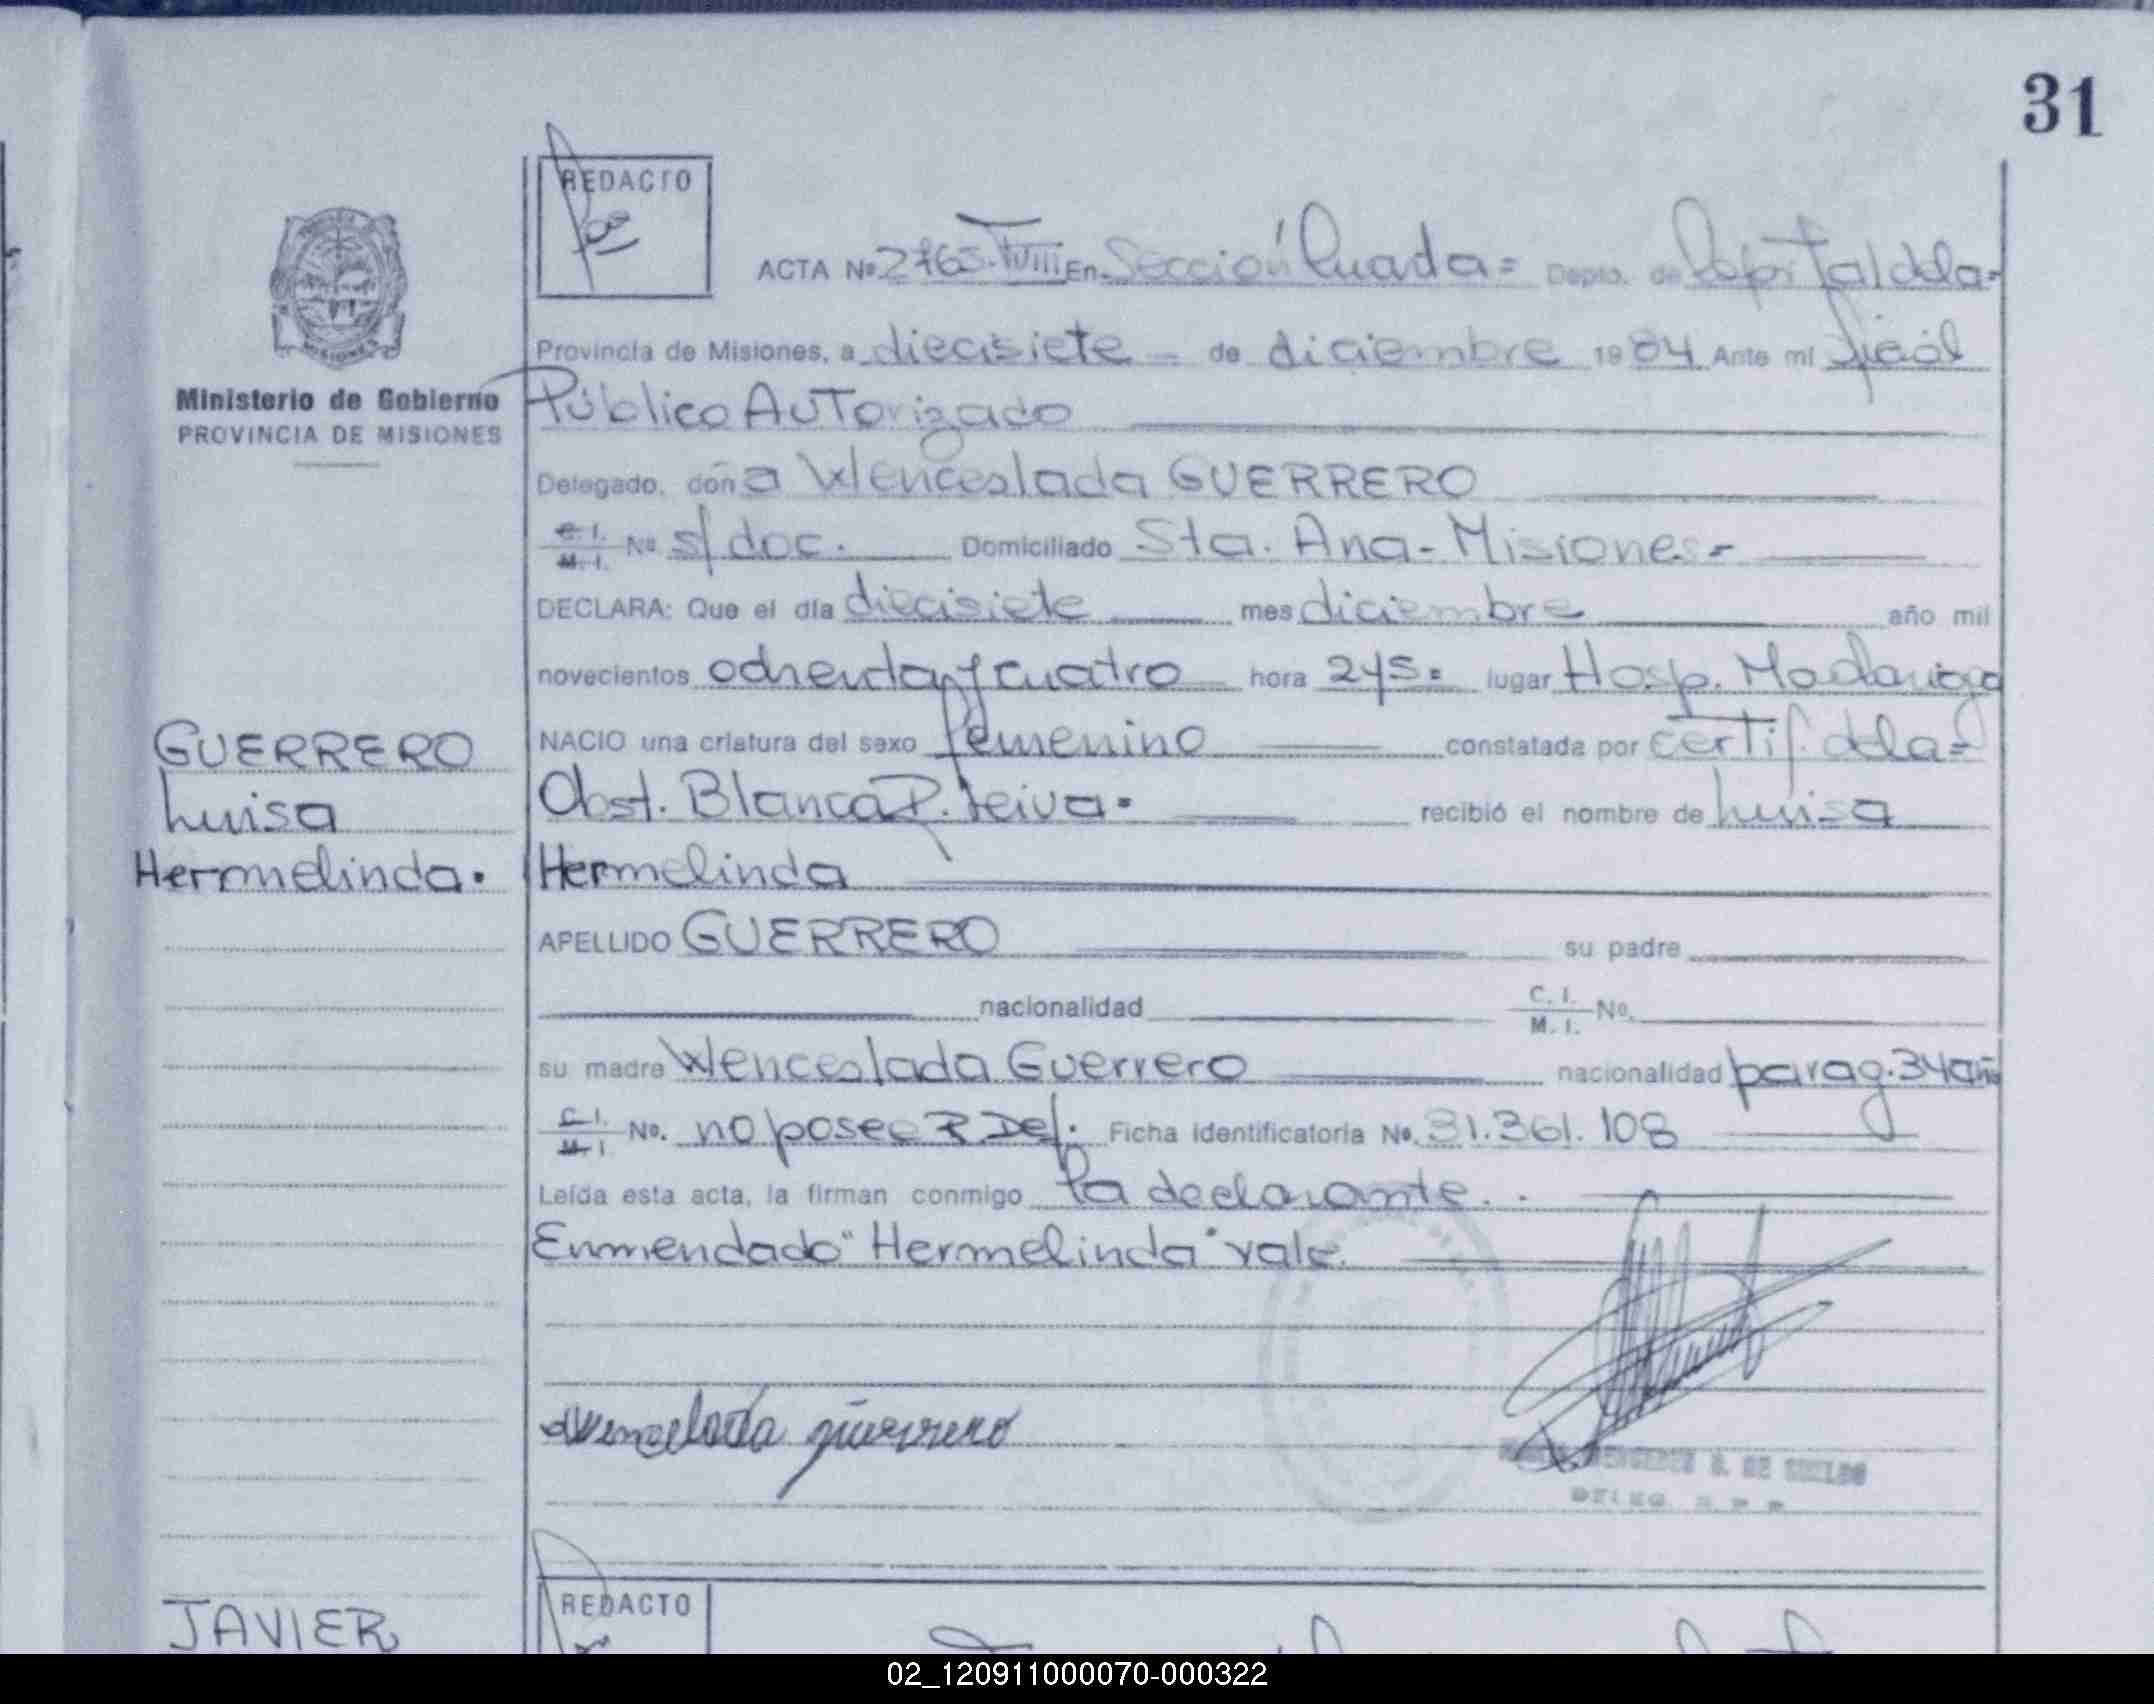 31
REDACTO
ACTA Nº 2765. T VIII En Sección Cuarta= Depto. de Capital de la=
Provincia de Misiones, a diecisiete de diciembre 1984 Ante mí Oficial
Ministerio de Gobierno
PROVINCIA DE MISIONES
Público Autorizado
Delegado, doña Wenceslada GUERRERO
C. I. M. I. Nº s/doc. Domiciliado Sta. Ana - Misiones=
DECLARA: Que el día diecisiete mes diciembre año mil
novecientos ochenta y cuatro hora 245= lugar Hosp. Madariaga
GUERRERO
Luisa
Hermelinda.
NACIO una criatura del sexo femenino constatada por certif. de la=
Obst. Blanca P. Leiva= recibió el nombre de Luisa
Hermelinda
APELLIDO GUERRERO su padre
nacionalidad C. I. M. I. No.
su madre Wenceslada Guerrero nacionalidad parag. 34 añ
C. I. M. I. No. no posee Ficha Identificatoria No. 31.361.108
Leída esta acta, la firman conmigo la declarante.
Enmendado "Hermelinda" vale.
Wenceslada guerrero
REDACTO
JAVIER
02_120911000070-000322